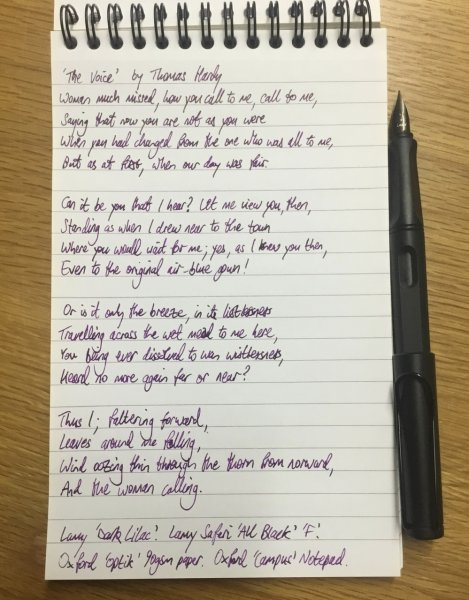 'The Voice' by Thomas Hardy
Woman much missed, how you call to me, call to me,
Saying that now you are not as you were
When you had changed from the one who was all to me,
But as at first, when our day was fair.
Can it be you that I hear? Let me view you, then,
Standing as when I drew near to the town
Where you would wait for me; yes, as I knew you then,
Even to the original air-blue gown!
Or is it only the breeze, in its listlessness
Travelling across the wet mead to me here,
You being ever dissolved to wan wistlessness,
Heard no more again far or near?
Thus I; faltering forward,
Leaves around me falling,
Wind oozing thin through the thorn from norward,
And the woman calling.
Lamy 'Dark Lilac'. Lamy Safari 'All Black' 'F'.
Oxford 'Optik' 90gsm paper. Oxford 'Campus' Notepad.